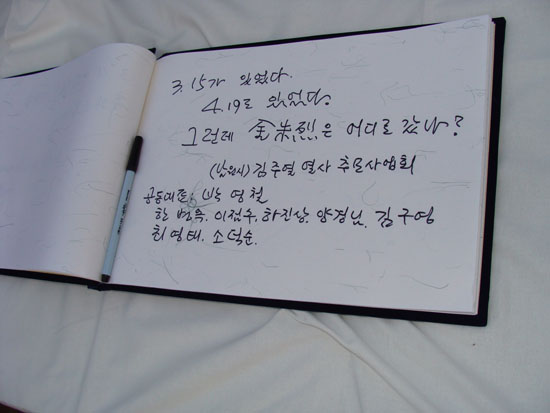 3.15가 있었다.
4.19도 있었다.
그런데 金朱烈은 어디로 갔나?
(남원시) 김주열 열사 추모사업회
공동대표: 박영철
한병옥, 이점수, 하진상, 양경님, 김구영
최영태, 소덕순.